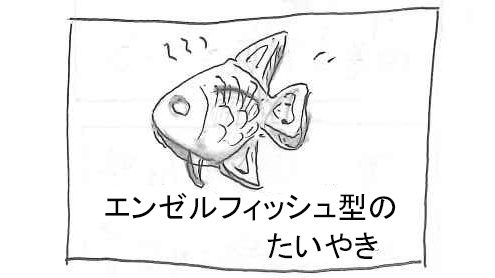 エンゼルフィッシュ型の
たいやき